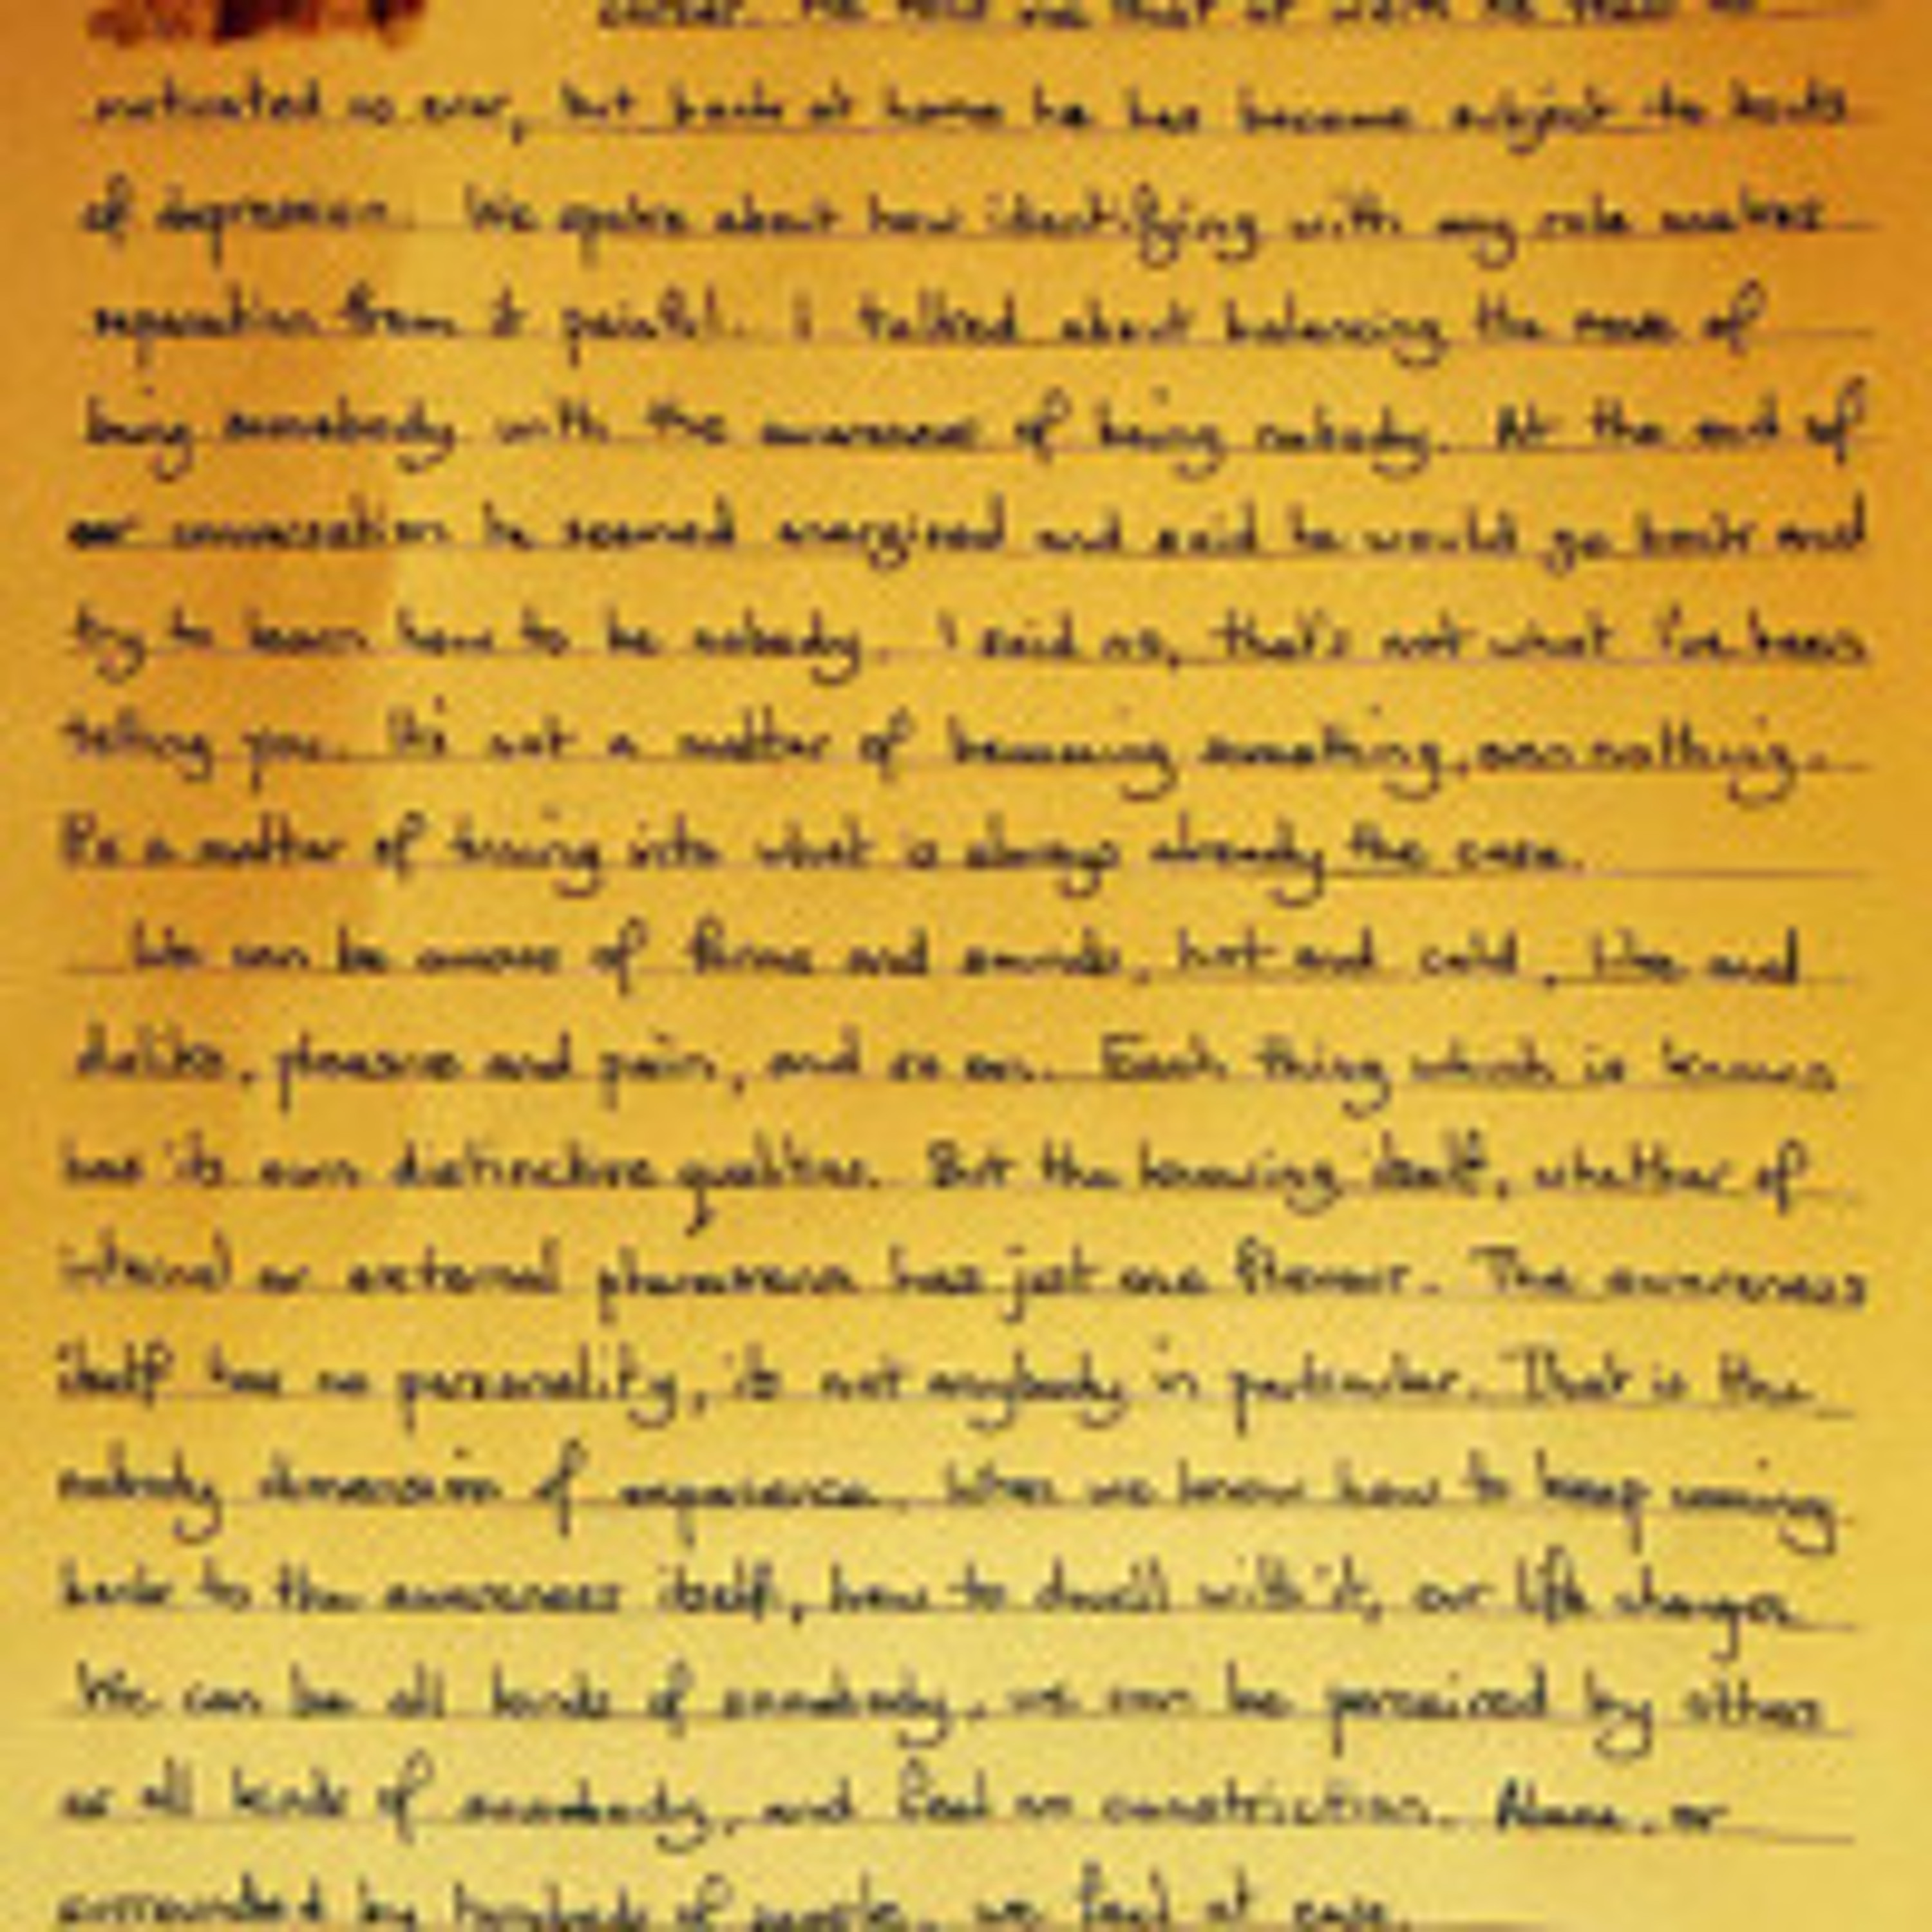 career. He told me that at work he feels as
motivated as ever, but back at home he has become subject to bouts
of depression. We spoke about how identifying with any role makes
separation from it painful. I talked about balancing the sense of
being somebody with the awareness of being nobody. At the end of
our conversation he seemed energized and said he would go back and
try to learn how to be nobody. I said no, that's not what I've been
telling you. It's not a matter of becoming something, even nothing.
It's a matter of tuning into what is always already the case.
We can be aware of forms and sounds, hot and cold, like and
dislike, pleasure and pain, and so on. Each thing which is known
has its own distinctive qualities. But the knowing itself, whether of
internal or external phenomena has just one flavour. The awareness
itself has no personality, its not anybody in particular. That is the
nobody dimension of experience. When we know how to keep coming
back to the awareness itself, how to dwell with it, our life changes
We can be all kinds of somebody, we can be perceived by others
as all kinds of somebody, and feel no constriction. Alone, or
surrounded by hundreds of people, we feel at ease.